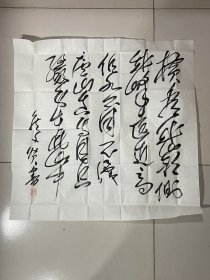 横看成岭侧
成峰远近高
低各不同不识
庐山真面目只
缘身在此山中
书